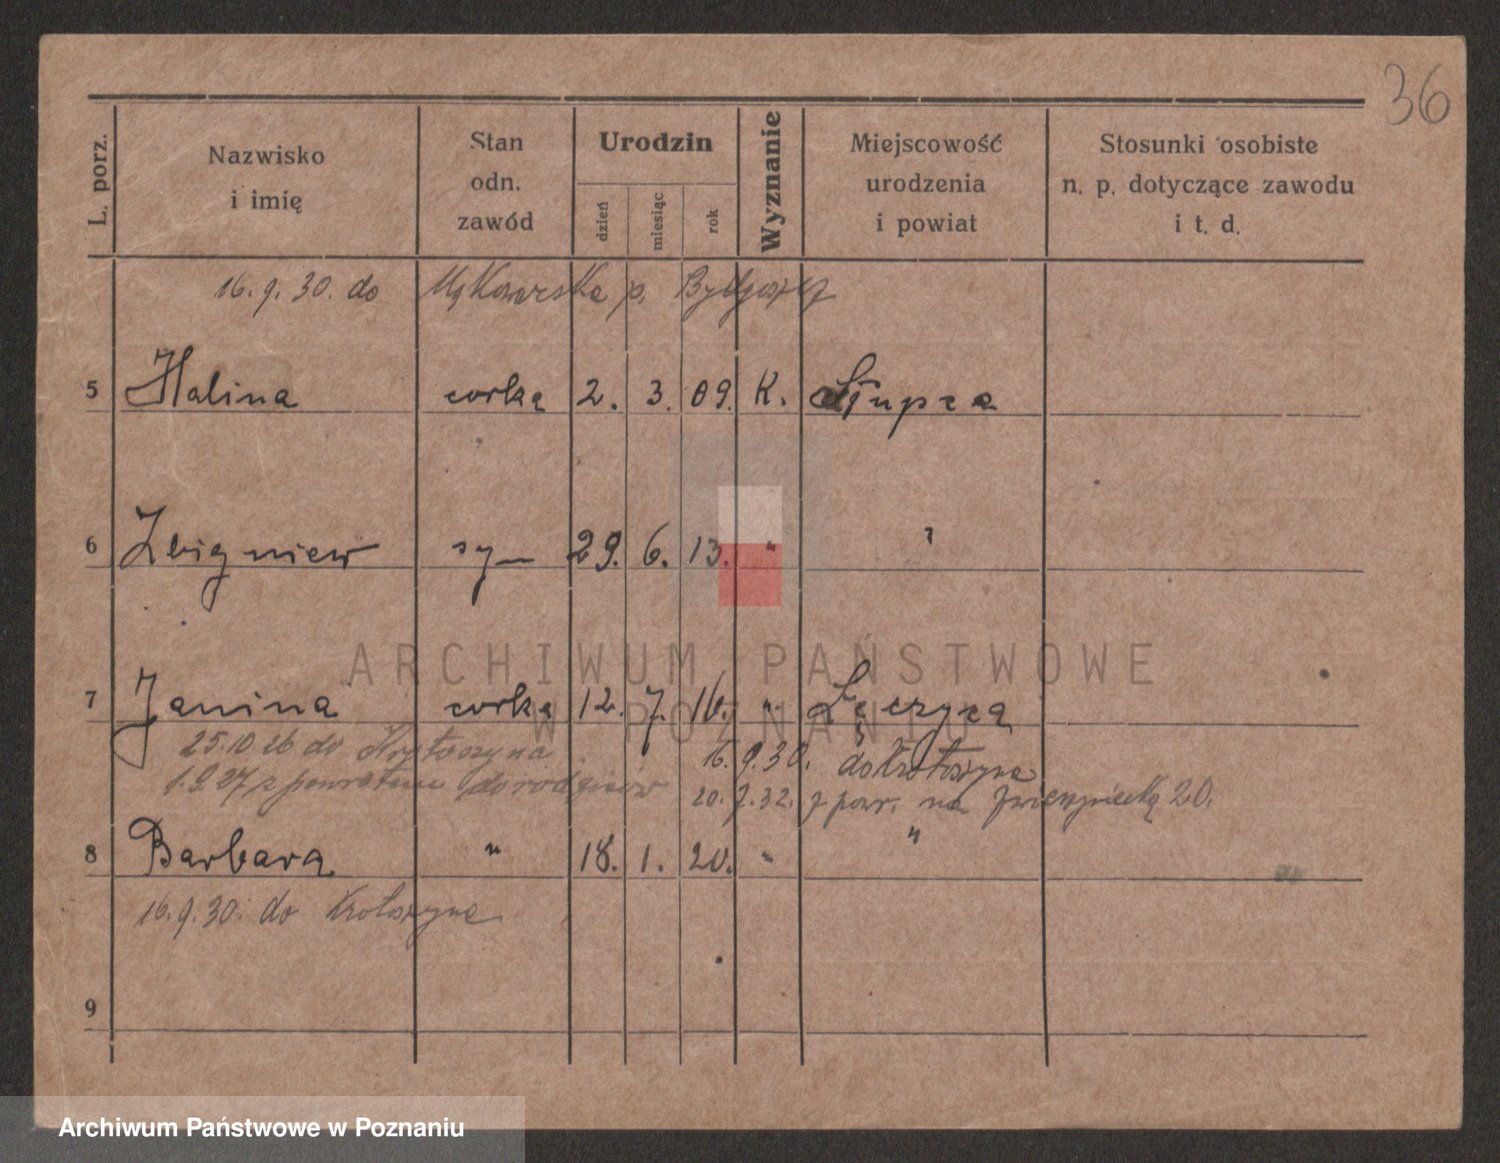 36
L. porz.
Nazwisko i imię
Stan odn. zawód
Urodzin
dzień
miesiąc
rok
Wyznanie
Miejscowość urodzenia i powiat
Stosunki osobiste n. p. dotyczące zawodu i t. d.
16.9.30. do p.
5 Halina corka 2. 3. 09. K. Słupca
6 Zbigniew syn 29. 6. 13. " "
ARCHIWUM PAŃSTWOWE
W POZNANIU
7 Janina corka 12. 7. 16. " Łęczyca
25.10.26 do Krotoszyna
16.9.30. do Krotoszyna
1.9.27 z powrotem do rodziców
20.7.32. z powr. na Zwierzyniecką 20.
8 Barbara " 18. 1. 20. " "
16.9.30. do Krotoszyna
9
Archiwum Państwowe w Poznaniu